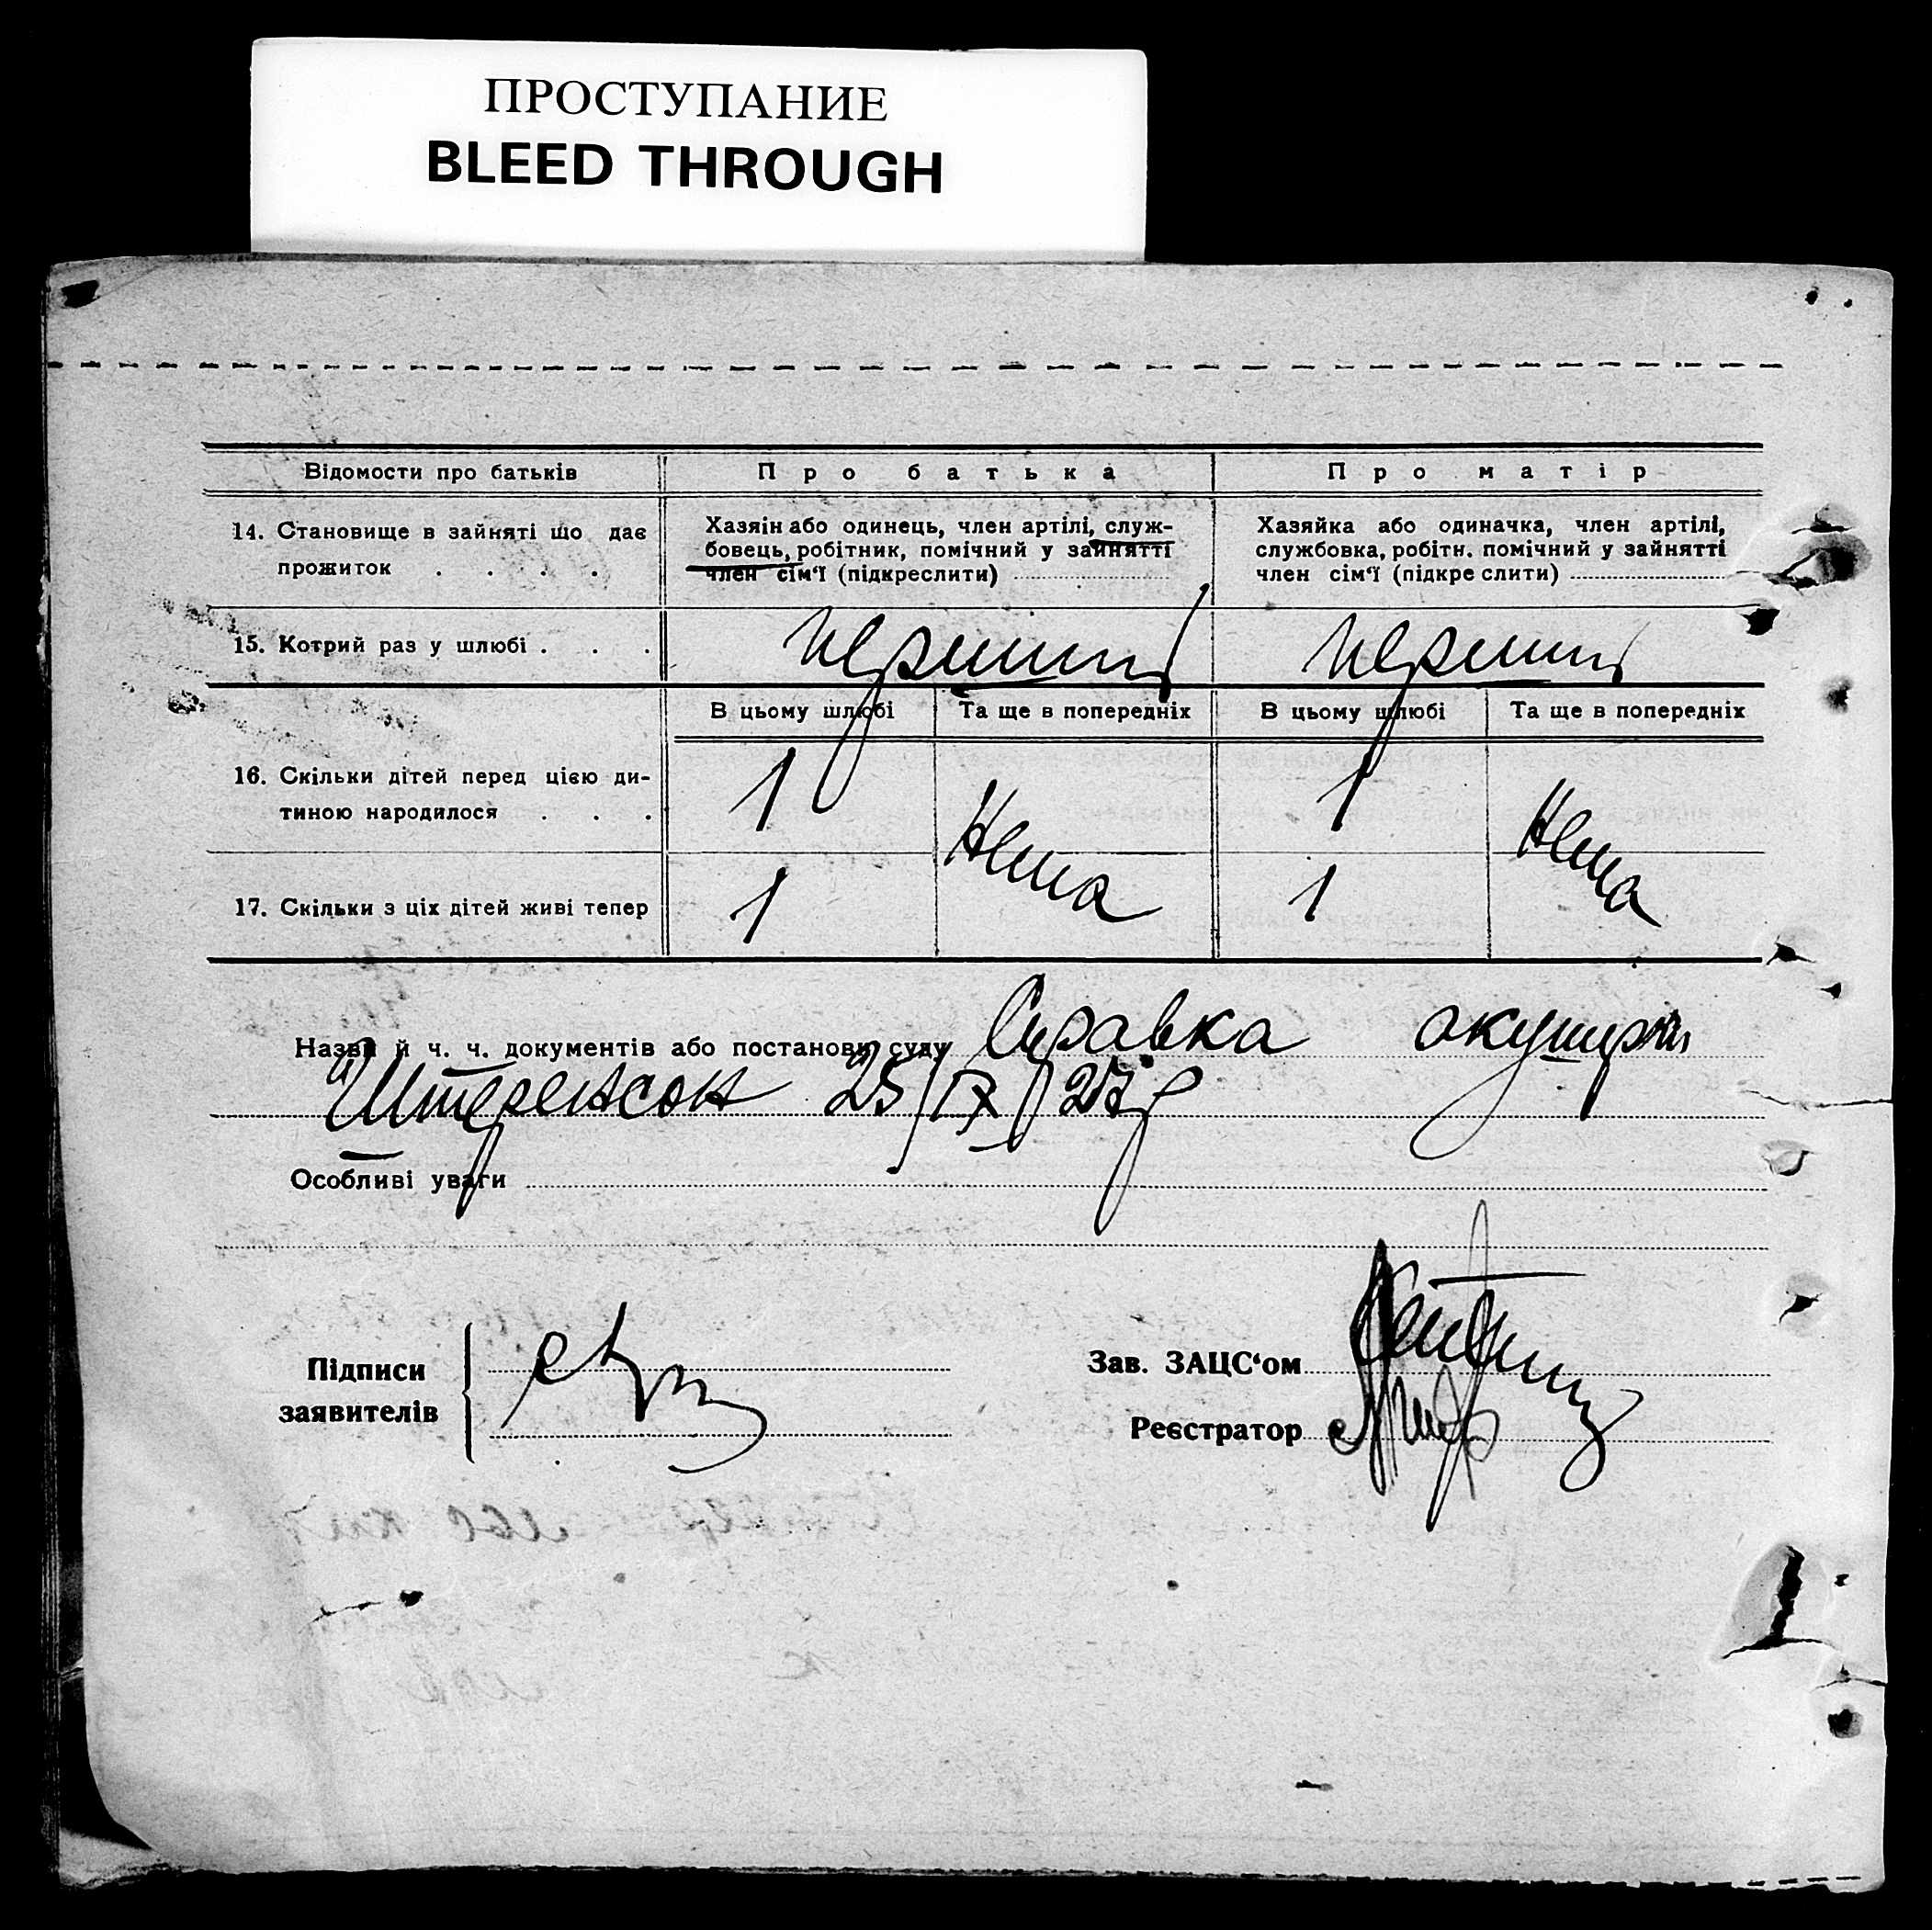 ПРОСТУПАНИЕ
BLEED THROUGH
Відомости про батьків
Про батька
Про матір
14. Становище в зайняті що дає
прожиток . . . .
Хазяін або одинець, член артілі, служ-
бовець, робітник, помічний у зайнятті
член сім‘ї (підкреслити)
Хазяйка або одиначка, член артілі,
службовка, робітн. помічний у зайнятті
член сім‘ї (підкре слити)
15. Котрий раз у шлюбі . . .
перший
перший
В цьому шлюбі
Та ще в попередніх
В цьому шлюбі
Та ще в попередніх
16. Скільки дітей перед цією ди-
тиною народилося . . .
1
Нема
1
Нема
17. Скільки з ціх дітей живі тепер
1
1
Назви й ч. ч. документів або постанови суду Справка акушерки
Штеренсон 25/IX/27 р
Особливі уваги
Підписи
заявителів
Зав. ЗАЦС‘ом
Реєстратор